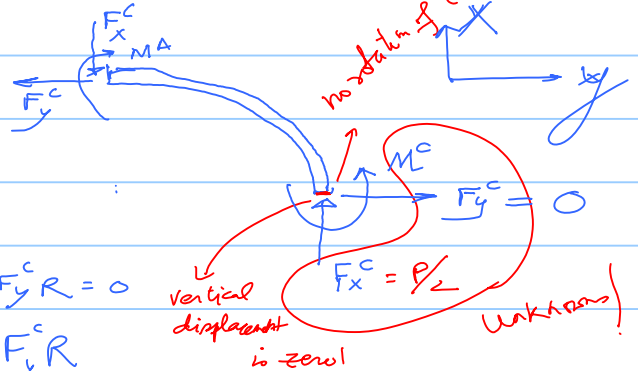 F_x^C
MA
F_y^C
no rotation of C
x
y
M^C
F_y^C = 0
F_x^C = P/2
F_y^C R = 0
vertical
displacement
is zero!
unknowns!
R